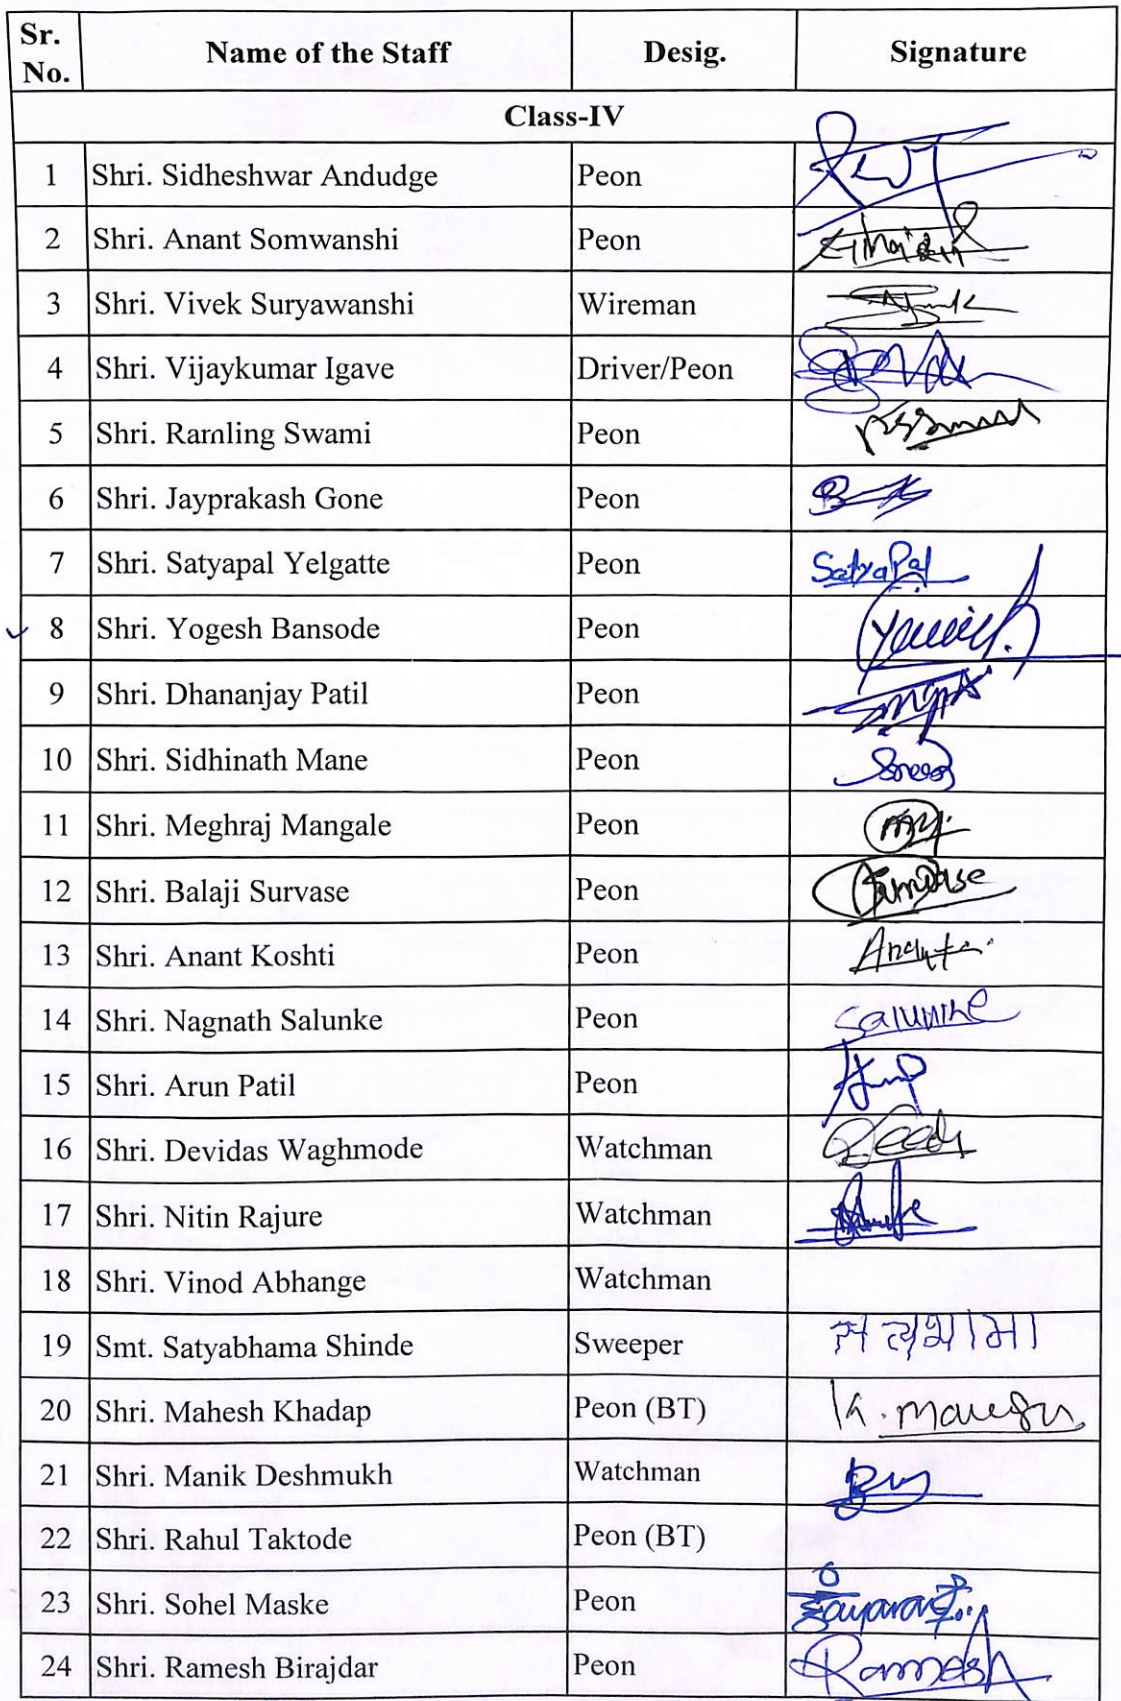 Sr. No. Name of the Staff Desig. Signature
Class-IV
1 Shri. Sidheshwar Andudge Peon
2 Shri. Anant Somwanshi Peon
3 Shri. Vivek Suryawanshi Wireman
4 Shri. Vijaykumar Igave Driver/Peon
5 Shri. Ramling Swami Peon
6 Shri. Jayprakash Gone Peon
7 Shri. Satyapal Yelgatte Peon Satyapal
8 Shri. Yogesh Bansode Peon
9 Shri. Dhananjay Patil Peon
10 Shri. Sidhinath Mane Peon
11 Shri. Meghraj Mangale Peon
12 Shri. Balaji Survase Peon
13 Shri. Anant Koshti Peon
14 Shri. Nagnath Salunke Peon Salunkhe
15 Shri. Arun Patil Peon
16 Shri. Devidas Waghmode Watchman
17 Shri. Nitin Rajure Watchman
18 Shri. Vinod Abhange Watchman
19 Smt. Satyabhama Shinde Sweeper सत्यभामा
20 Shri. Mahesh Khadap Peon (BT)
21 Shri. Manik Deshmukh Watchman
22 Shri. Rahul Taktode Peon (BT)
23 Shri. Sohel Maske Peon
24 Shri. Ramesh Birajdar Peon Ramesh